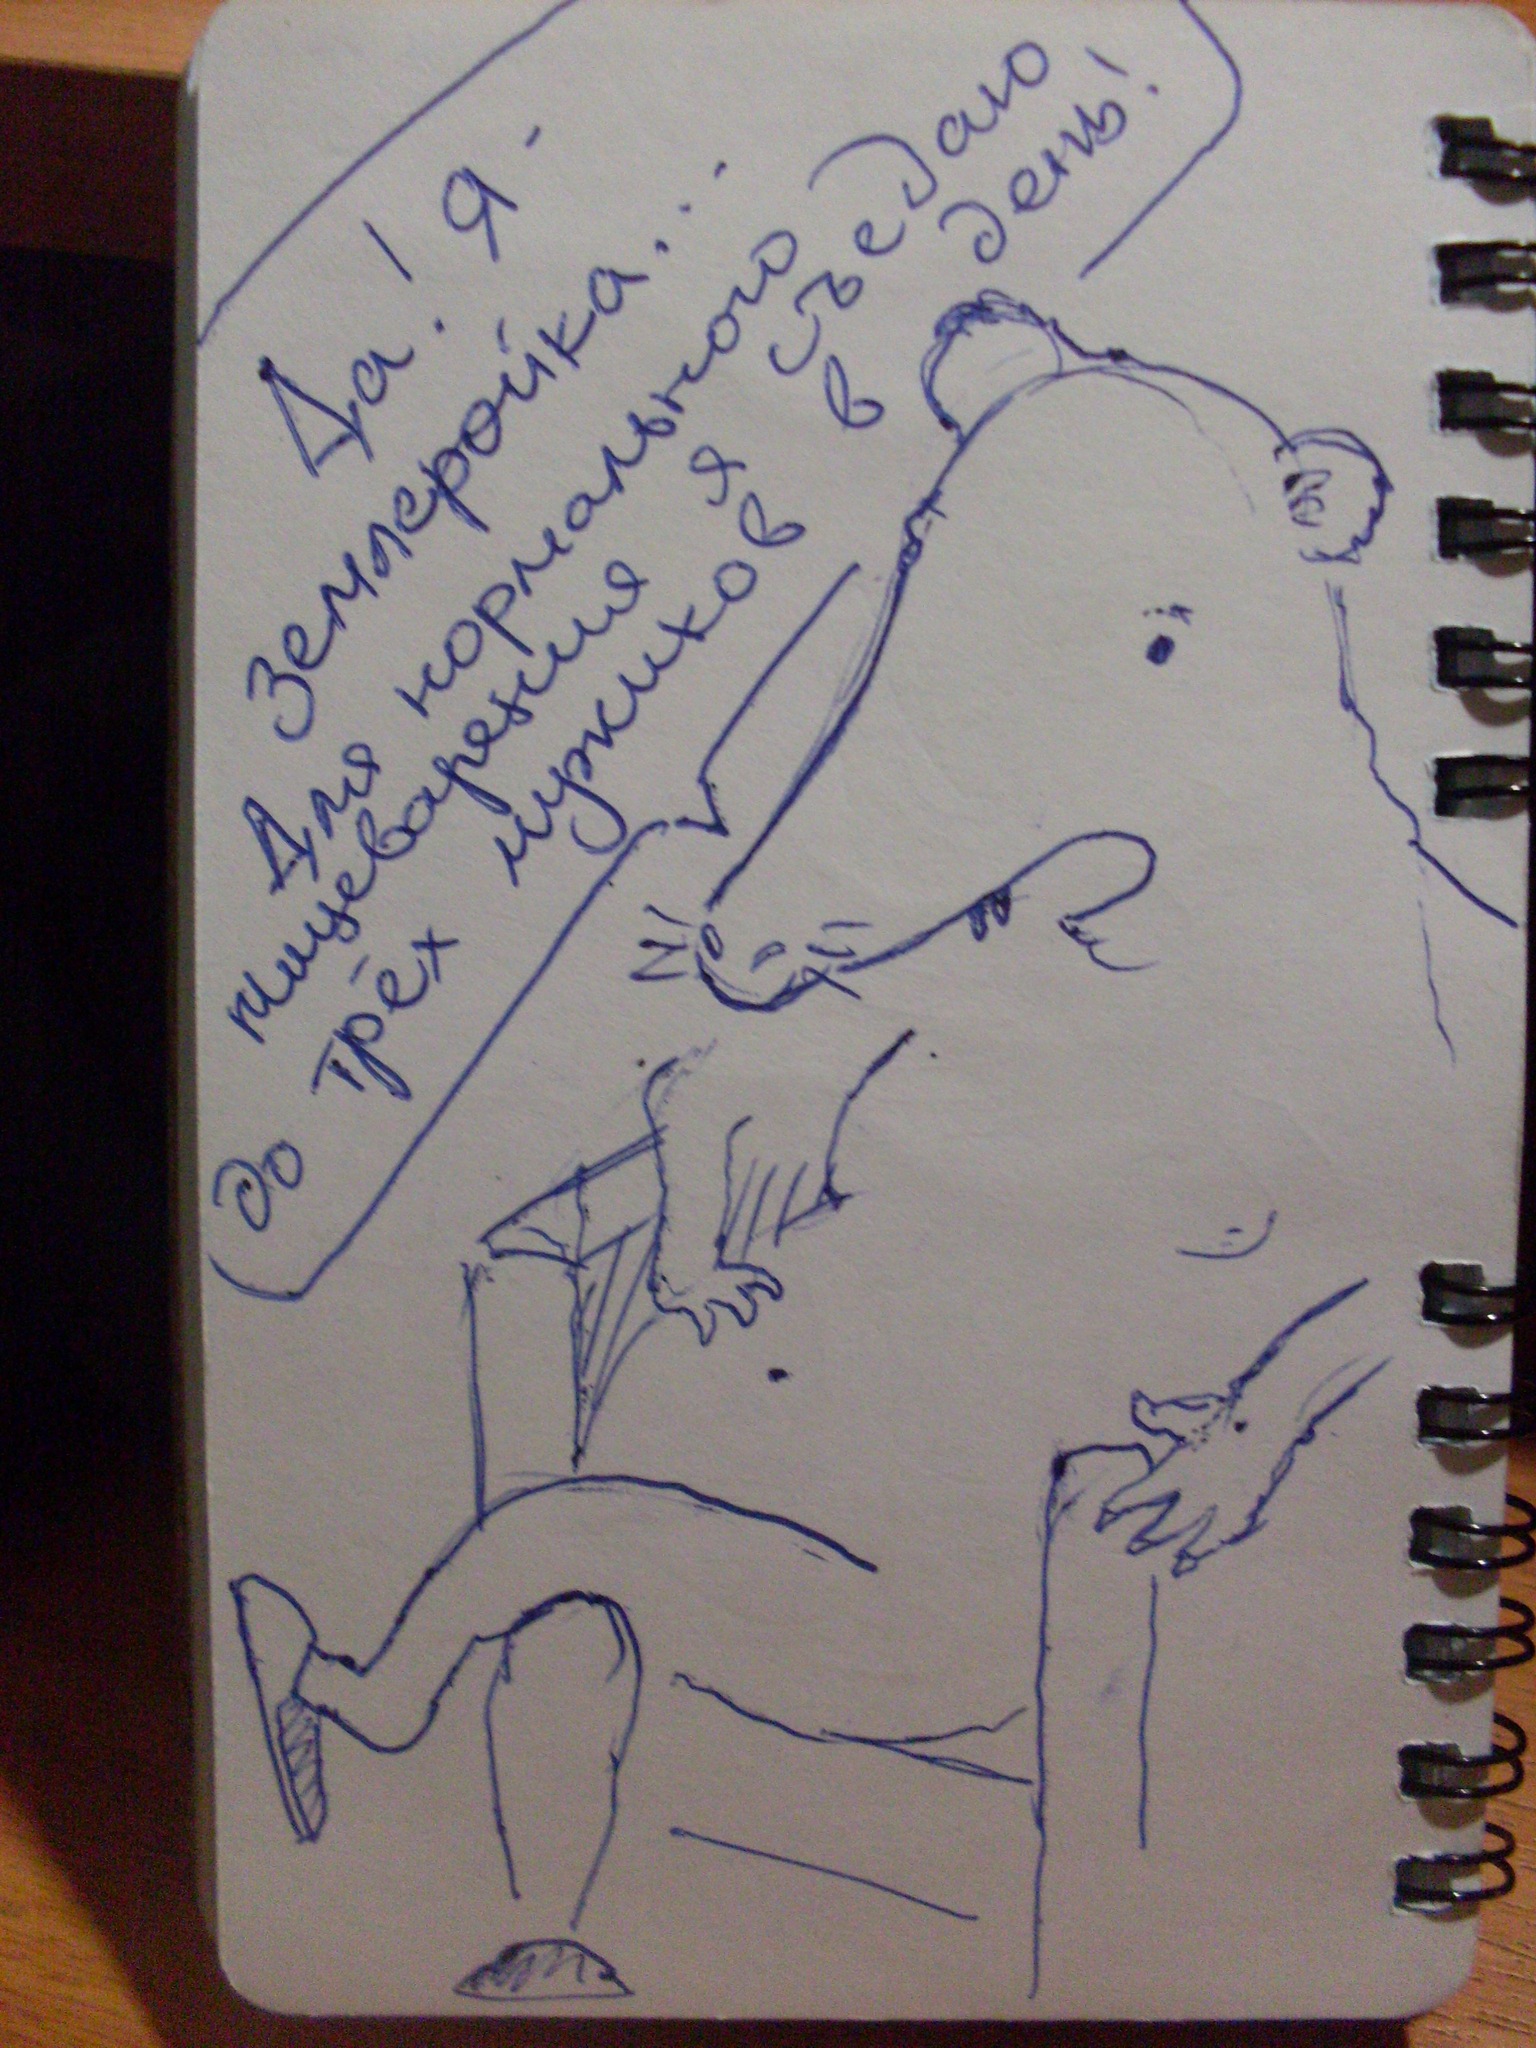 Да! Я -
землеройка...
Для нормального
пищеварения я съедаю
до трёх мужиков в день!